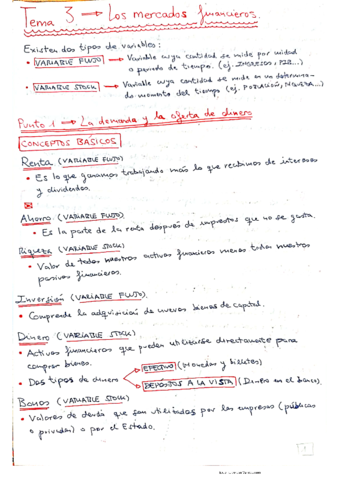 Tema 3 → Los mercados financieros.
Existen dos tipos de variables:
• VARIABLE FLUJO → Variable cuya cantidad se mide por unidad
o periodo de tiempo. (ej. INGRESOS, PIB...)
• VARIABLE STOCK → Variable cuya cantidad se mide en un determina-
do momento del tiempo (ej. POBLACIÓN, RIQUEZA...)
Punto 1 → La demanda y la oferta de dinero
CONCEPTOS BÁSICOS
Renta (VARIABLE FLUJO)
• Es lo que ganamos trabajando más lo que recibimos de intereses
y dividendos.
Ahorro (VARIABLE FLUJO)
• Es la parte de la renta después de impuestos que no se gasta.
Riqueza (VARIABLE STOCK)
• Valor de todos nuestros activos financieros menos todos nuestros
pasivos financieros.
Inversión (VARIABLE FLUJO)
• Comprende la adquisición de nuevos bienes de capital.
Dinero (VARIABLE STOCK)
• Activos financieros que pueden utilizarse directamente para
comprar bienes.
• Dos tipos de dinero EFECTIVO (Monedas y billetes)
DEPÓSITOS A LA VISTA (Dinero en el banco)
Bonos (VARIABLE STOCK)
• Valores de deuda que son utilizados por las empresas (públicas
o privadas) o por el Estado.
1